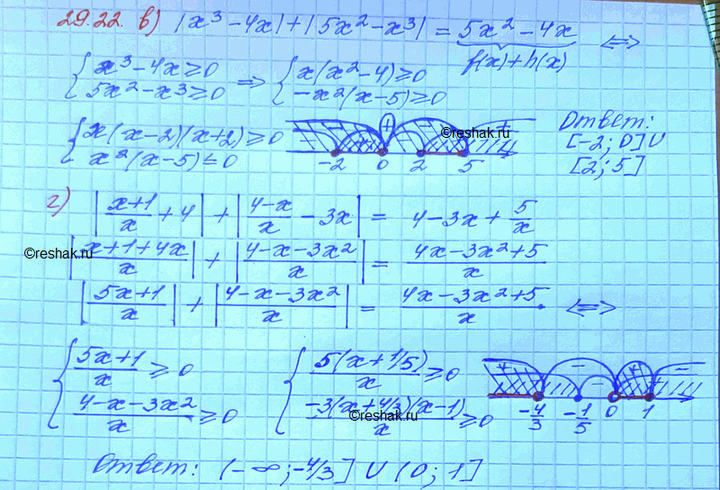 29.22. в) |x³ - 4x| + |5x² - x³| = 5x² - 4x ⇔
f(x)+h(x)
{ x³ - 4x ≥ 0 ⇒ { x(x² - 4) ≥ 0
5x² - x³ ≥ 0 -x²(x - 5) ≥ 0
{ x(x - 2)(x + 2) ≥ 0
x²(x - 5) ≤ 0
+ +
-2 0 2 5
©reshak.ru
Ответ:
[-2; 0] U
[2; 5]
г) |(x+1)/x + 4| + |(4-x)/x - 3x| = 4 - 3x + 5/x
©reshak.ru
|(x+1+4x)/x| + |(4-x-3x²)/x| = (4x-3x²+5)/x
|(5x+1)/x| + |(4-x-3x²)/x| = (4x-3x²+5)/x ⇔
{ (5x+1)/x ≥ 0 { 5(x+1/5)/x ≥ 0
(4-x-3x²)/x ≥ 0 -3(x+4/3)(x-1)/x ≥ 0
©reshak.ru
+ - - + -
-4/3 -1/5 0 1
Ответ: (-∞; -4/3] U (0; 1]